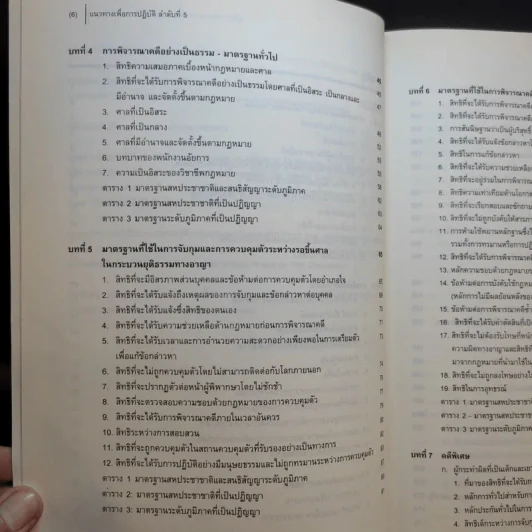 (6) แนวทางเพื่อการปฏิบัติ ลำดับที่ 5
บทที่ 4 การพิจารณาคดีอย่างเป็นธรรม - มาตรฐานทั่วไป
1. สิทธิความเสมอภาคเบื้องหน้ากฎหมายและศาล
2. สิทธิที่จะได้รับการพิจารณาคดีอย่างเป็นธรรมโดยศาลที่เป็นอิสระ เป็นกลางและ
มีอำนาจ และจัดตั้งขึ้นตามกฎหมาย
3. ศาลที่เป็นอิสระ
4. ศาลที่เป็นกลาง
5. ศาลที่มีอำนาจและจัดตั้งขึ้นตามกฎหมาย
6. บทบาทของพนักงานอัยการ
7. ความเป็นอิสระของวิชาชีพกฎหมาย
ตาราง 1 มาตรฐานสหประชาชาติและสนธิสัญญาระดับภูมิภาค
ตาราง 2 มาตรฐานสหประชาชาติที่เป็นปฏิญญา
ตาราง 3 มาตรฐานระดับภูมิภาคที่เป็นปฏิญญา
บทที่ 5 มาตรฐานที่ใช้ในการจับกุมและการควบคุมตัวระหว่างรอขึ้นศาล
ในกระบวนยุติธรรมทางอาญา
1. สิทธิที่จะมีอิสรภาพส่วนบุคคลและข้อห้ามต่อการควบคุมตัวโดยอำเภอใจ
2. สิทธิที่จะได้รับแจ้งถึงเหตุผลของการจับกุมและข้อกล่าวหาต่อบุคคล
3. สิทธิที่จะได้รับแจ้งซึ่งสิทธิของตนเอง
4. สิทธิที่จะได้รับความช่วยเหลือด้านกฎหมายก่อนการพิจารณาคดี
5. สิทธิที่จะได้รับเวลาและการอำนวยความสะดวกอย่างเพียงพอในการเตรียมตัว
เพื่อแก้ข้อกล่าวหา
6. สิทธิที่จะไม่ถูกควบคุมตัวโดยไม่สามารถติดต่อกับโลกภายนอก
7. สิทธิที่จะปรากฏตัวต่อหน้าผู้พิพากษาโดยไม่ชักช้า
8. สิทธิที่จะตรวจสอบความชอบด้วยกฎหมายของการควบคุมตัว
9. สิทธิที่จะได้รับการพิจารณาคดีภายในเวลาอันควร
10. สิทธิระหว่างการสอบสวน
11. สิทธิที่จะถูกควบคุมตัวในสถานควบคุมตัวที่รับรองอย่างเป็นทางการ
12. สิทธิที่จะได้รับการปฏิบัติอย่างมีมนุษยธรรมและไม่ถูกทรมานระหว่างการควบคุมตัว
ตาราง 1 มาตรฐานสหประชาชาติและสนธิสัญญาระดับภูมิภาค
ตาราง 2: มาตรฐานสหประชาชาติที่เป็นปฏิญญา
ตาราง 3: มาตรฐานระดับภูมิภาคที่เป็นปฏิญญา
บทที่ 6 มาตรฐานที่ใช้ในการพิจารณาคดี
1. สิทธิที่จะได้รับการพิจารณา
2. สิทธิที่จะได้รับการพิจารณาคดี
3. การสันนิษฐานว่าเป็นผู้บริสุทธิ์
4. สิทธิที่จะได้รับแจ้งข้อกล่าวหา
5. สิทธิในการแก้ข้อกล่าวหา
6. สิทธิที่จะได้รับความช่วยเหลือ
7. สิทธิที่จะอยู่ร่วมในการพิจารณา
8. สิทธิความเท่าเทียมด้านโอกาส
9. สิทธิที่จะเรียกสอบและซักถาม
10. สิทธิที่จะไม่ถูกบังคับให้สารภาพ
11. การห้ามใช้พยานหลักฐานซึ่ง
รวมทั้งการทรมานหรือการปฏิ
12. สิทธิที่จะได้รับการพิจารณา
13. หลักความชอบด้วยกฎหมาย
14. ข้อห้ามต่อการบังคับใช้กฎหมาย
(หลักการไม่มีผลย้อนหลังของ
15. ข้อห้ามต่อการพิจารณาคดีซ้ำ
16. สิทธิที่จะได้รับคำตัดสินที่เป็น
17. สิทธิที่จะไม่ต้องรับโทษที่หนัก
ความผิดทางอาญาและสิทธิที่
มาจากกฎหมายที่นำมาใช้ใน
18. สิทธิที่จะไม่ถูกลงโทษอย่าง
19. สิทธิในการอุทธรณ์
ตาราง 1 มาตรฐานสหประชาชาติ
ตาราง 2 - มาตรฐานสหประชา
ตาราง 3 มาตรฐานระดับภูมิภาค
บทที่ 7 คดีพิเศษ
ก. ผู้กระทำผิดที่เป็นเด็กและเยา
1. ที่มาของสิทธิที่จะได้รับการ
2. หลักการทั่วไปสำหรับการ
3. หลักประกันทั่วไปในการ
4. สิทธิเด็กระหว่างการจับ